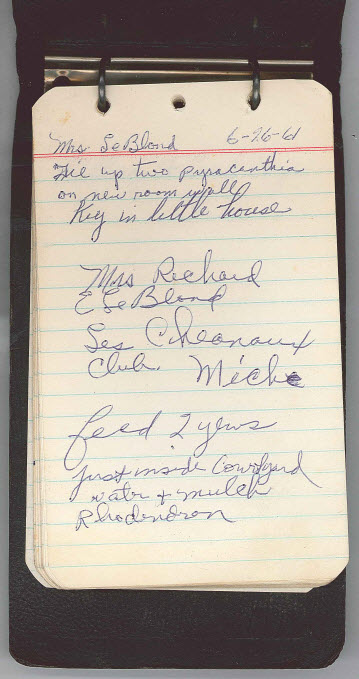 Mrs. LeBlond 6-26-61
Tie up two pyracanthia
on new room wall
Key in little house
Mrs Richard
E LeBlond
Les Cheanaux
Club. Mich
feed 2 yews
just inside Courtyard
water + mulch
Rhodendron